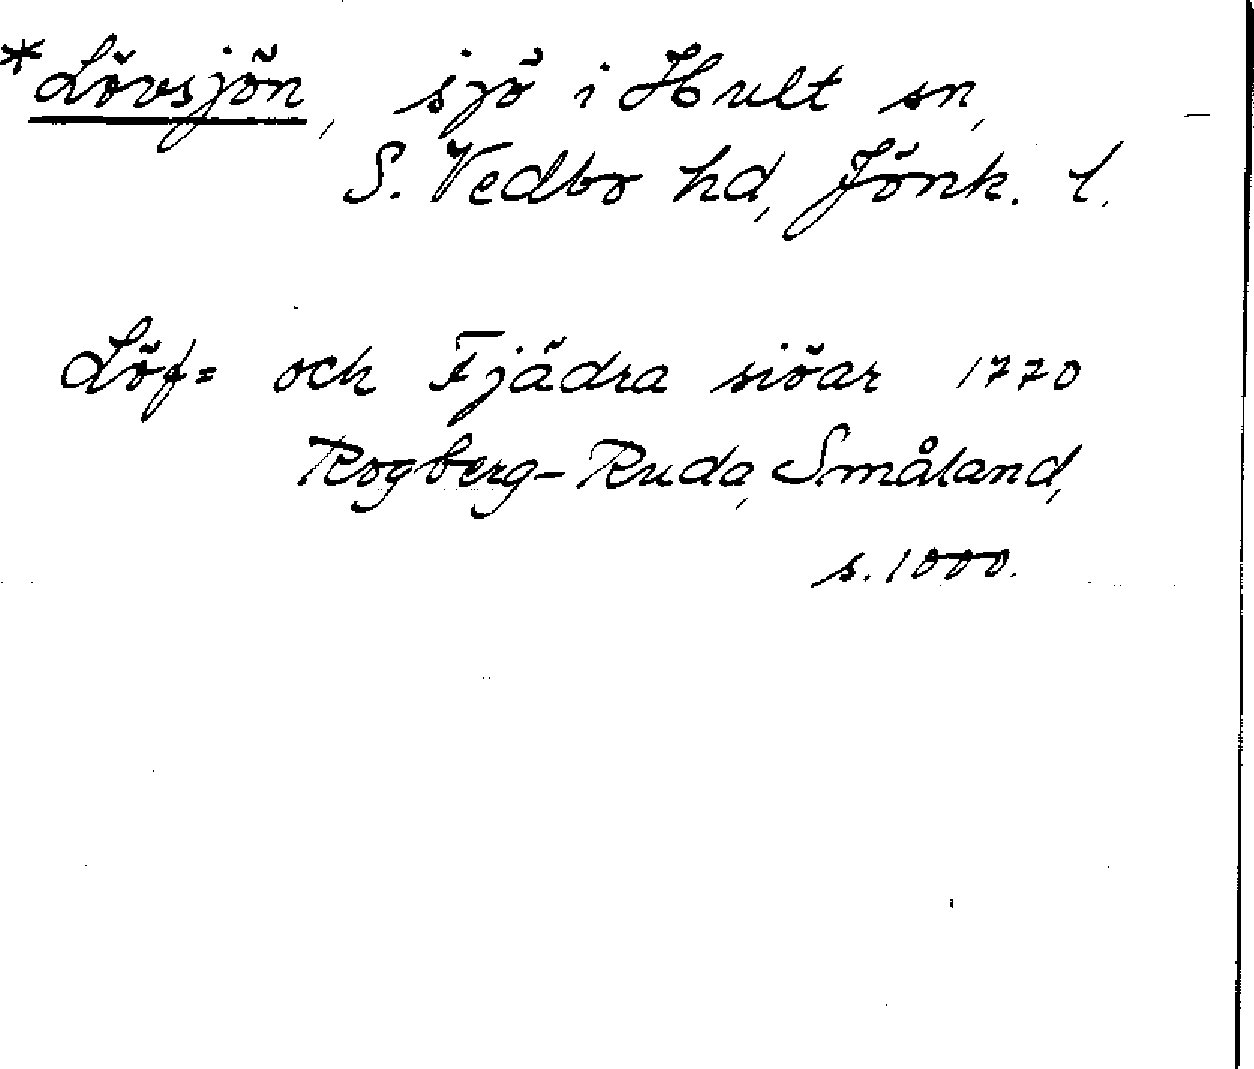 *Lövsjön, sjö i Hult sn,
S. Vedbo hd, Jönk. l.
Löf= och Fjädra siöar 1770
Rogberg-Ruda, Småland,
s. 1000.